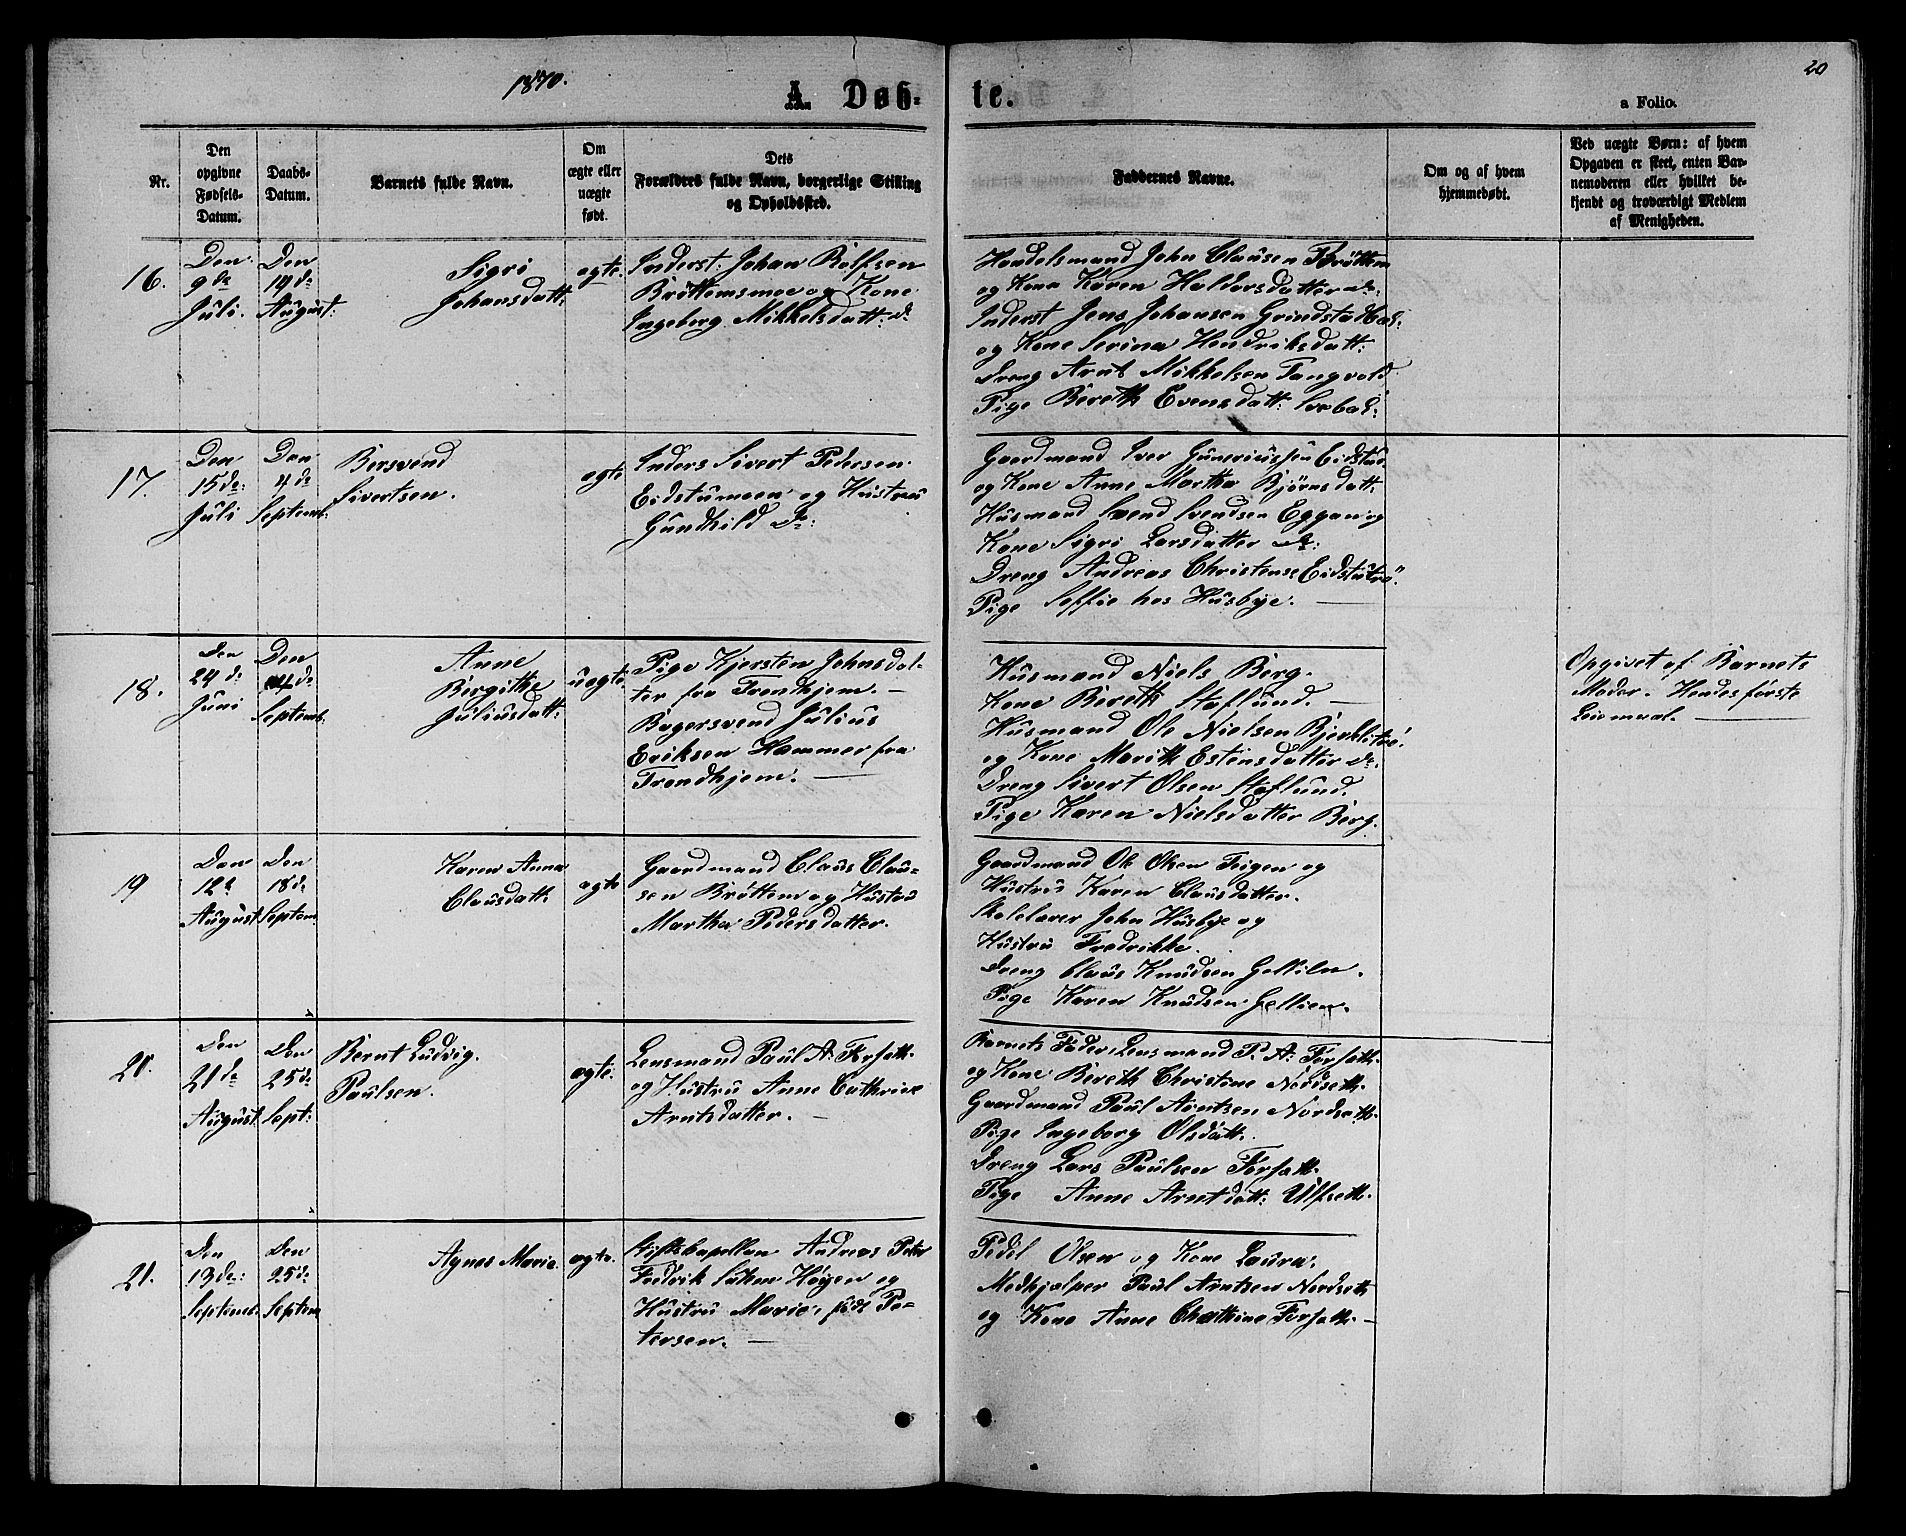 1870.
A. Døb-
te.
20
a Folio.
Nr.
Den
opgivne
Fødsels-
Datum.
Daabs-
Datum.
Barnets fulde Navn.
Om
ægte eller
uægte
født.
Dets
Forældres fulde Navn, borgerlige Stilling
og Opholdssted.
Faddernes Navne.
Om og af hvem
hjemmedøbt.
Ved uægte Børn: af hvem
Opgaven er skeet, enten Bar-
nemoderen eller hvilket be-
kjendt og troværdigt Medlem
af Menigheden.
16.
Den
9de
Juli.
Den
19de
August.
Sigri
Johansdatt:
egte.
Inderst. Johan Rolfsen
Bröttemsmoe og Kone
Ingeborg Mikkelsdatt: do
Handelsmand John Clausen Bröttem
og Kone Karen Haldorsdatter do:
Inderst Jens Johansen Grindstadbak:
og Kone Serina Hendriksdatt:
Dreng Arnt Mikkelsen Tangvold
Pige Bereth Evensdatt:
17.
Den
15de:
Juli
Den
4de
Septemb:
Bersvend
Sivertsen.
egte
Inders Sivert Pedersen
Eidstumoen og Hustru
Gunhild do:
Gaardmand Iver Guneriussen Eidstu
og Kone Anne Martha Bjørnsdatt:
Husmand Svend Svendsen Eggan og
Kone Sigri Larsdatter do:
Dreng Andreas Christense Eidstutrö
Pige Soffie hos Husbye.
18.
Den
24de
Juni
Den
4de
Septemb.
Anne
Bergitha
Juliusdatt:
uegte.
Pige Kjersten Johnsdat-
ter fra Trondhjem. —
Bagersvend Julius
Eriksen Hammer fra
Trondhjem. —
Husmand Niels Berg.
Kone Bereth Stoflund. —
Husmand Ole Nielsen Bjerklitrö.
og Kone Marith Estensdatter do.
Dreng Sivert Olsen Stoflund.
Pige Karen Nielsdatter Berg.
Opgivet af Barnets
Moder. Hendes første
Leiermaal. —
19
Den
12te
August
Den
18de
Septem.
Karen Anna
Clausdatt.
egte
Gaardmand Claus Clau-
sen Bröttem og Hustru
Martha Pedersdatter.
Gaardmand Ole Olsen Teigen og
Hustru Karen Clausdatter.
Skolelærer John Husbye og
Hustru Fredrikke.
Dreng Claus Knudsen
Pige Karen Knudsen
20.
Den
21de
August
Den
25de
Sept:
Bernt Ludvig.
Paulsen.
egte.
Lensmand Paul A. Forseth.
og Hustru Anne Cathrine
Arntsdatter. —
Barnets Fader, Lensmand P. A. Forseth.
og Kone Bereth Christine Nordseth.
Gaardmand Paul Arntsen Nordseth.
Pige Ingeborg Olsdatt.
Dreng Lars Paulsen Forseth.
Pige Anne Arntdatt: Ulfseth.
21.
Den
13de:
Septemb.
Den
25de
Septem
Agnes Marie
ægte.
Stiftskapellan Andreas Peter
Fredrik Høyen og
Hustru Marie, født Pe-
tersen. —
Pedel Olsen og Kone Laura.
Medhjælper Paul Arntsen Nordseth
og Kone Anne Chathrine Forseth. —